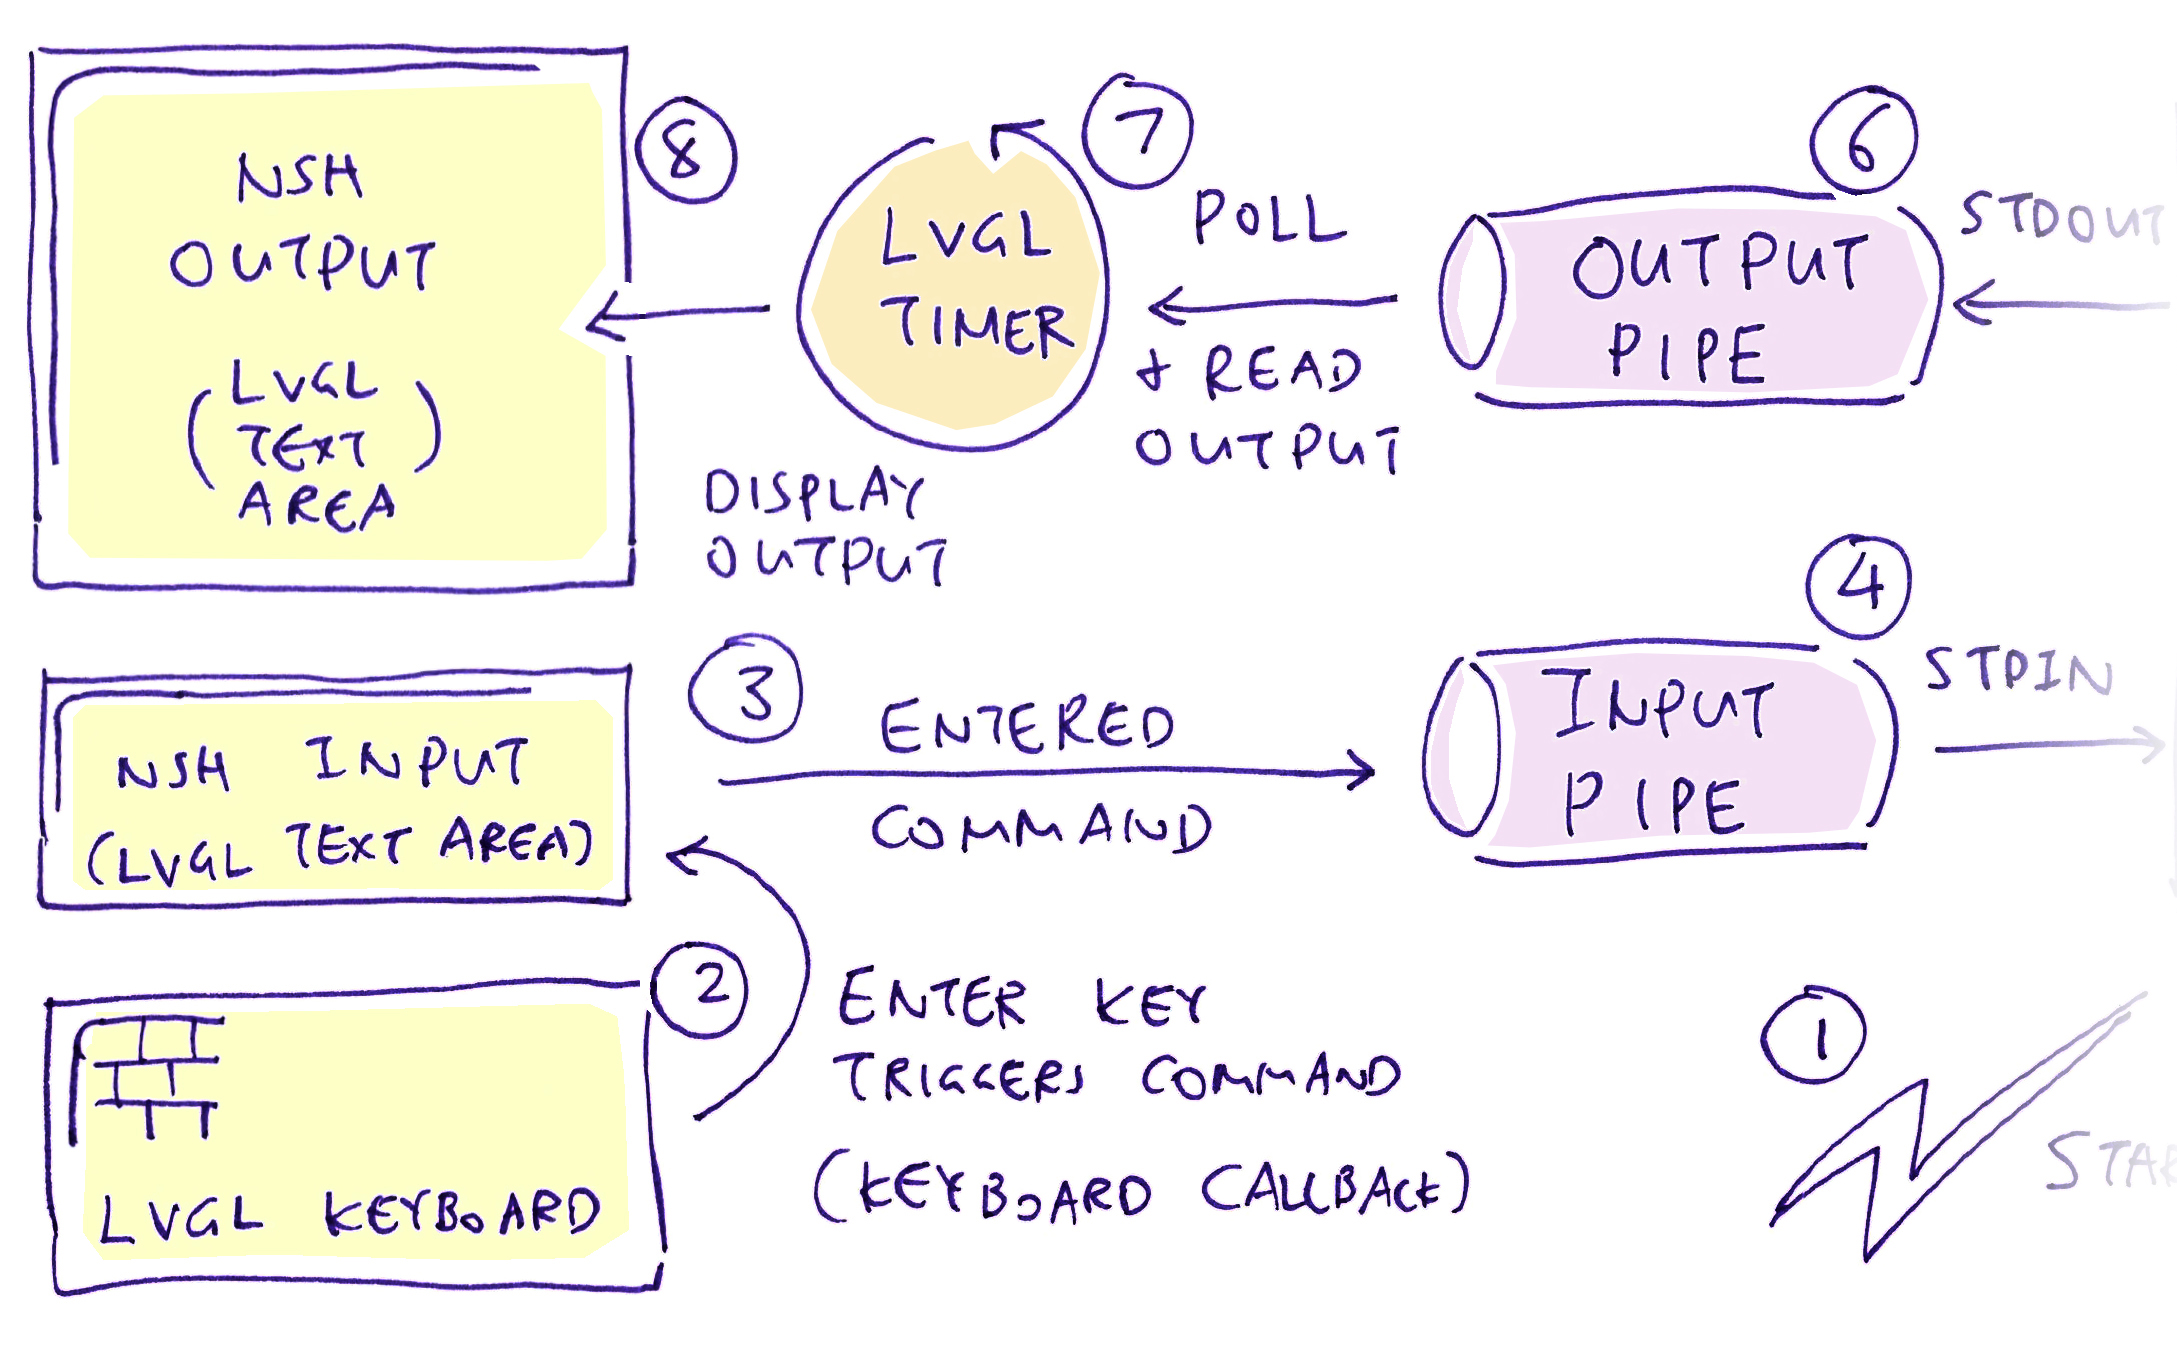 NSH
OUTPUT
(LVGL
TEXT
AREA)
8
DISPLAY
OUTPUT
LVGL
TIMER
7
POLL
+ READ
OUTPUT
6
OUTPUT
PIPE
STDOUT
NSH INPUT
(LVGL TEXT AREA)
3
ENTERED
COMMAND
4
INPUT
PIPE
STDIN
LVGL KEYBOARD
2
ENTER KEY
TRIGGERS COMMAND
(KEYBOARD CALLBACK)
1